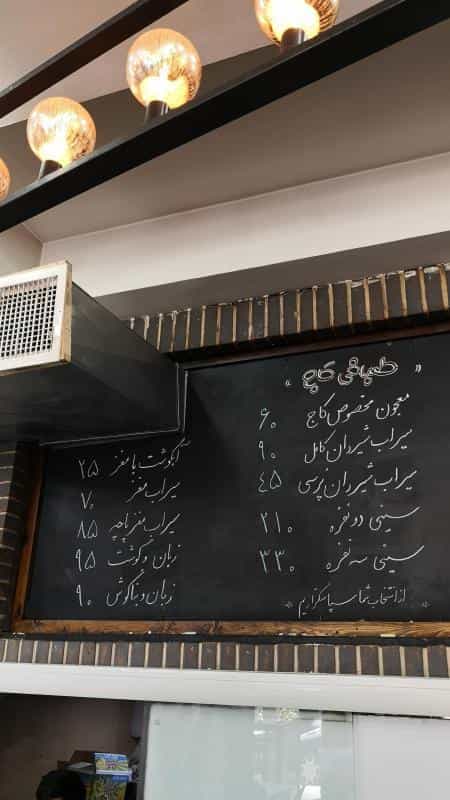 « طباخی کاج »
معجون مخصوص کاج ۶۰
سیراب شیردان کامل ۹۰
سیراب شیردان پرسی ۴۵
سینی دو نفره ۲۱۰
سینی سه نفره ۳۳۰
« از انتخاب شما سپاسگزاریم »
آبگوشت با مغز ۲۵
سیراب مغز ۷۰
سیراب مغز پاچه ۸۵
زبان و گوشت ۹۵
زبان و بناگوش ۹۰